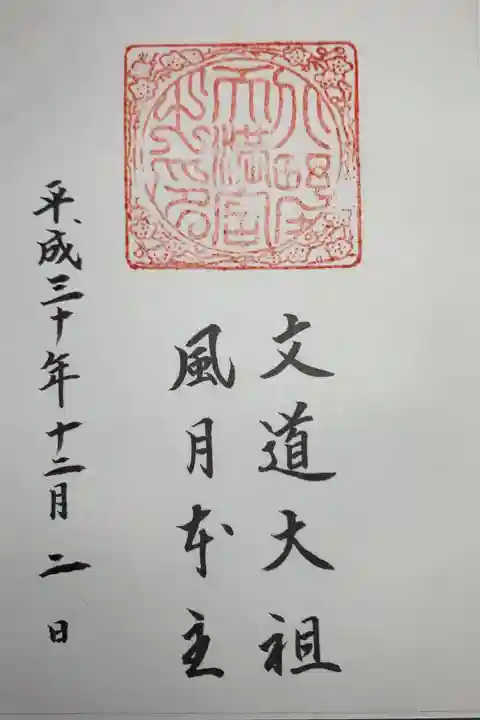 文道大祖
風月本主
平成三十年十二月二日